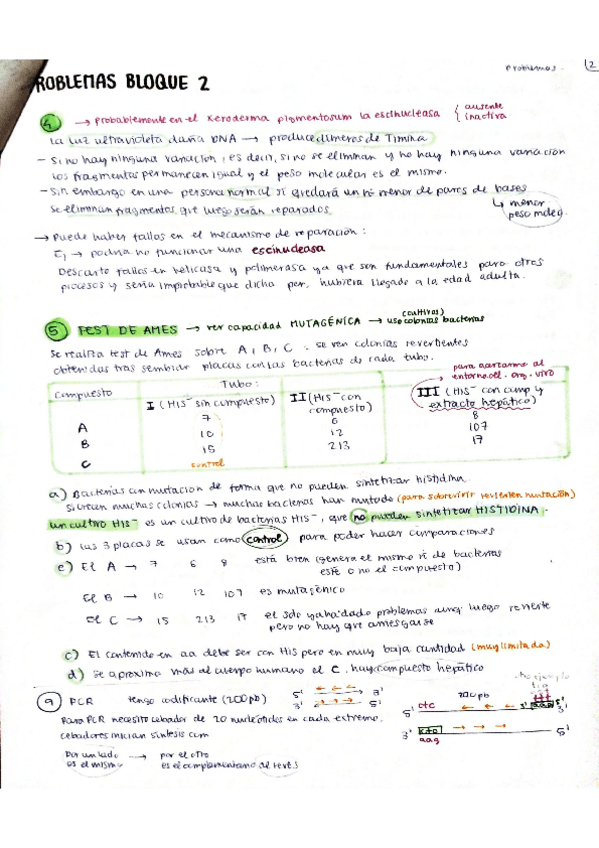 Problemas. 2
ROBLEMAS BLOQUE 2
4 → Probablemente en el Xeroderma pigmentosum la escinucleasa { ausente inactiva
La luz ultravioleta daña DNA → produce dímeros de Timina
- Si no hay ninguna variación, es decir, si no se eliminan y no hay ninguna variación
los fragmentos permanecen igual y el peso molecular es el mismo.
- Sin embargo en una persona normal si quedará un nº menor de pares de bases
Se eliminan fragmentos que luego serán reparados.
↳ menor peso molec.
→ Puede haber fallos en el mecanismo de reparación:
Ej → podría no funcionar una escinucleasa
Descarto fallos en helicasa y polimerasa ya que son fundamentales para otros
procesos y sería improbable que dicha per. hubiera llegado a la edad adulta.
5 TEST DE AMES → ver capacidad MUTAGÉNICA → uso colonias bacterias
(cultivos)
Se realiza test de Ames sobre A, B, C. se ven colonias revertientes
obtenidas tras sembrar placas con las bacterias de cada tubo.
para acercarme al
entorno cel. org. vivo
Compuesto Tubo:
I (His⁻ sin compuesto) II (His⁻ con compuesto) III (His⁻ con comp y extracto hepático)
A 7 6 8
B 10 12 107
C 15 213 17
control
a) Bacterias con mutación de forma que no pueden sintetizar histidina.
Si crecen muchas colonias → muchas bacterias han mutado (para sobrevivir revierten mutación)
Un cultivo HIS⁻ es un cultivo de bacterias HIS⁻, que no pueden sintetizar HISTIDINA.
b) Las 3 placas se usan como control para poder hacer comparaciones
e) El A → 7 6 8 está bien (genera el mismo nº de bacterias
esté o no el compuesto)
El B → 10 12 107 es mutagénico
El C → 15 213 17 el solo ya ha dado problemas aunq luego revierte
pero no hay que arriesgarse
c) El contenido en aa debe ser con His pero en muy baja cantidad (muy limitada)
d) Se aproxima más al cuerpo humano el C. hay compuesto hepático
9 PCR tengo codificante (200pb) 5' 3'
3' 5'
Para PCR necesito cebador de 20 nucleótidos en cada extremo.
cebadores inician síntesis con
Por un lado → por el otro
es el mismo es el complementario al revés
200 pb
5' ctc 3' 5'
3' 5'
aag